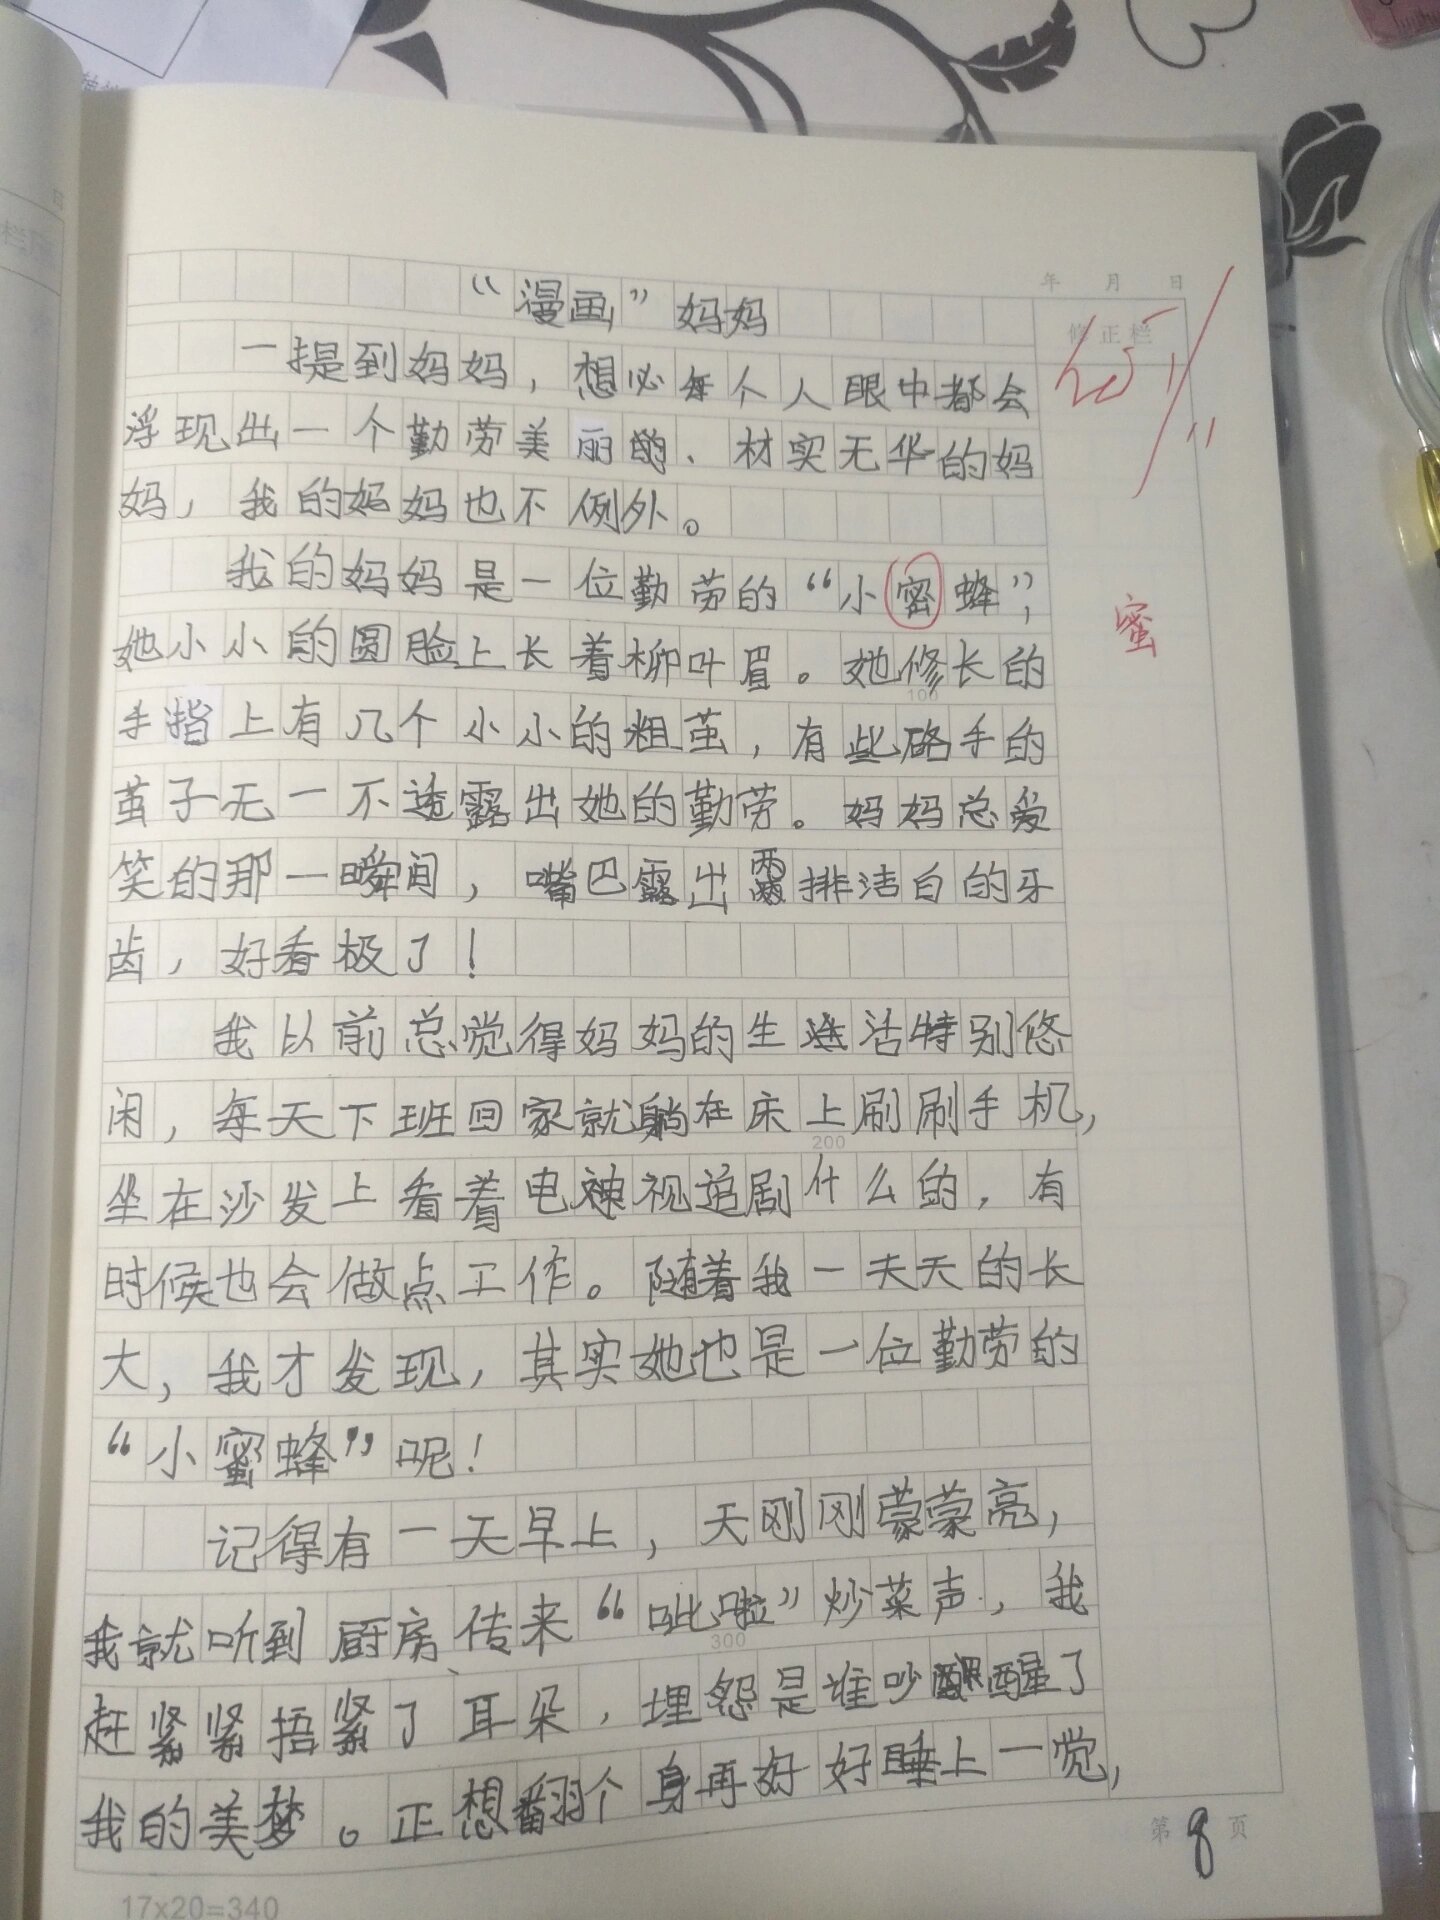 年 月 日
修正栏
“漫画”妈妈
一提到妈妈，想必每个人眼中都会
浮现出一个勤劳美丽的、材实无华的妈
妈，我的妈妈也不例外。
我的妈妈是一位勤劳的“小密蜂”，
蜜
她小小的圆脸上长着柳叶眉。她修长的
100
手指上有几个小小的粗茧，有些硌手的
茧子无一不透露出她的勤劳。妈妈总爱
笑的那一瞬间，嘴巴露出两排洁白的牙
齿，好看极了！
我以前总觉得妈妈的生活特别悠
闲，每天下班回家就躺在床上刷刷手机，
200
坐在沙发上看着电视追剧什么的，有
时候也会做点工作。随着我一天天的长
大，我才发现，其实她也是一位勤劳的
“小蜜蜂”呢！
记得有一天早上，天刚刚蒙蒙亮，
我就听到厨房传来“呲啦”炒菜声，我
300
赶紧紧捂紧了耳朵，埋怨是谁吵醒了
我的美梦。正想翻个身再好好睡上一觉，
第8页
17x20=340